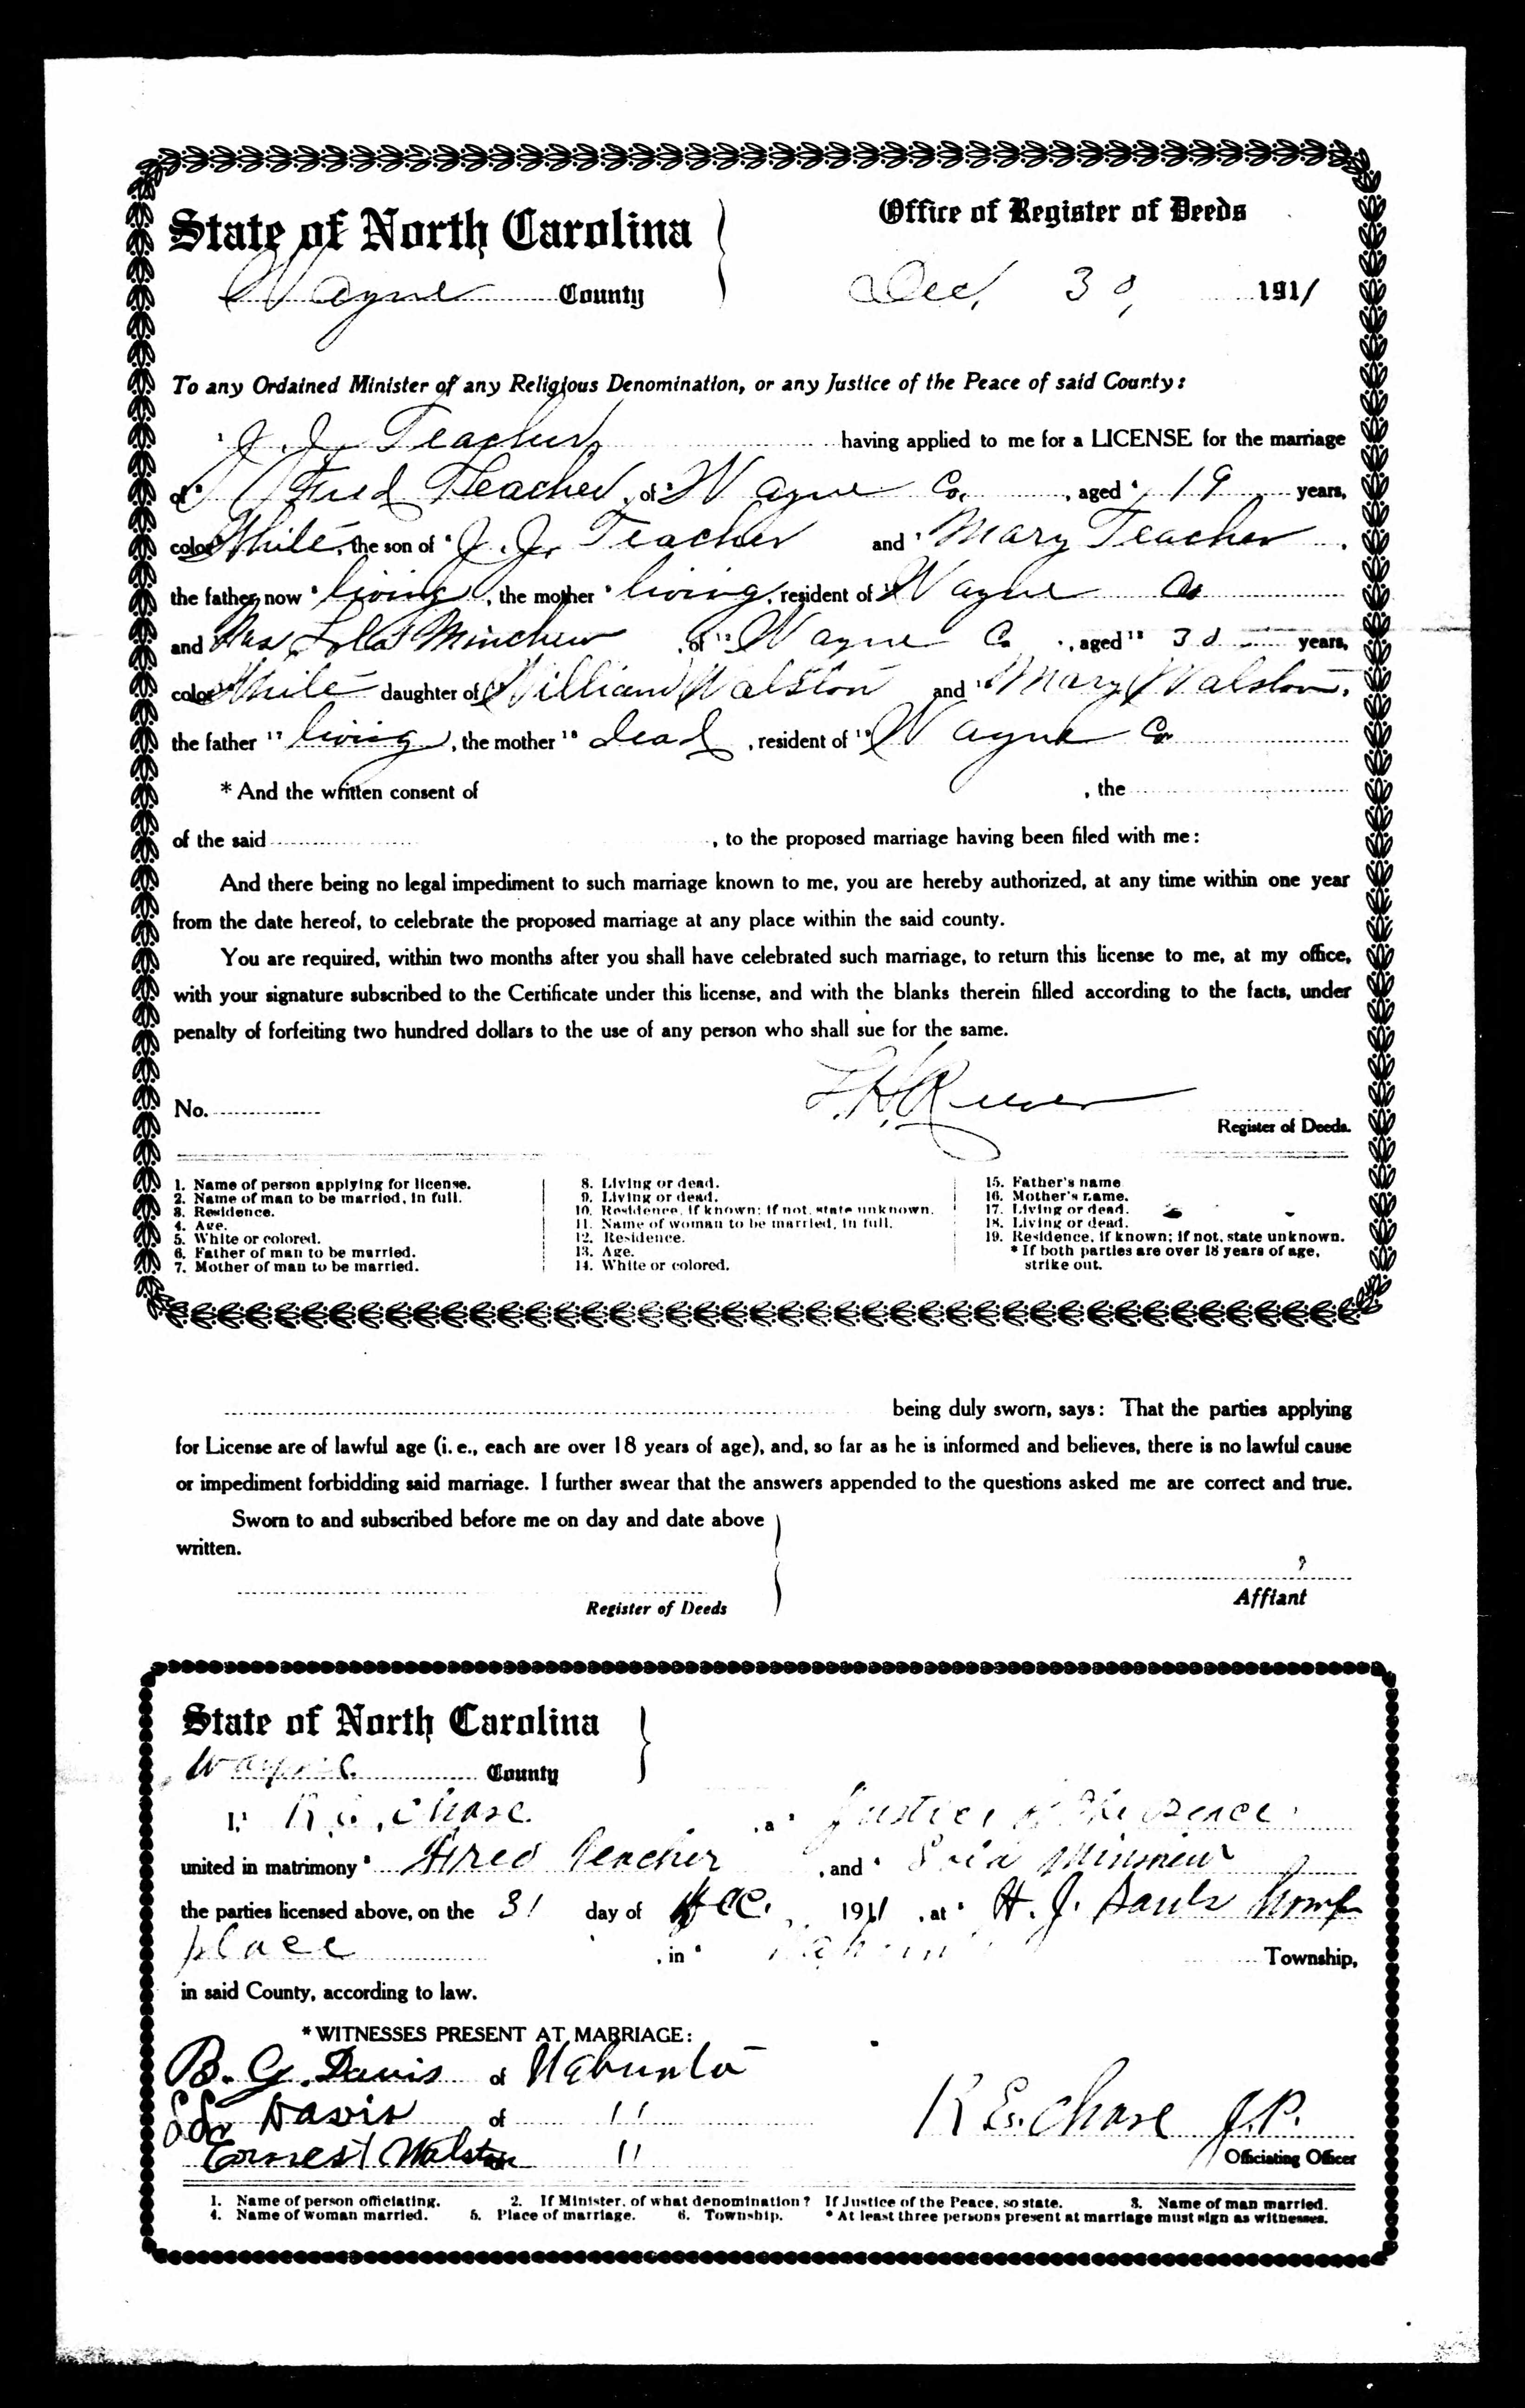 State of North Carolina
Office of Register of Deeds
Wayne County
Dec, 30, 1911
To any Ordained Minister of any Religious Denomination, or any Justice of the Peace of said County:
1 J. J. Teacher, having applied to me for a LICENSE for the marriage
of 2 Fred Teacher, of 3 Wayne Co., aged 4 19 years,
color 5 White, the son of 6 J. J. Teacher and 7 Mary Teacher
the father now 8 living, the mother 9 living, resident of 10 Wayne Co
and 11 Mrs Lola Minchew, of 12 Wayne Co, aged 13 30 years,
color 14 White daughter of 15 William Walston and 16 Mary Walston.
the father 17 living, the mother 18 dead, resident of 19 Wayne Co
* And the written consent of , the
of the said , to the proposed marriage having been filed with me:
And there being no legal impediment to such marriage known to me, you are hereby authorized, at any time within one year
from the date hereof, to celebrate the proposed marriage at any place within the said county.
You are required, within two months after you shall have celebrated such marriage, to return this license to me, at my office,
with your signature subscribed to the Certificate under this license, and with the blanks therein filled according to the facts, under
penalty of forfeiting two hundred dollars to the use of any person who shall sue for the same.
No.
Register of Deeds.
1. Name of person applying for license.
2. Name of man to be married, in full.
3. Residence.
4. Age.
5. White or colored.
6. Father of man to be married.
7. Mother of man to be married.
8. Living or dead.
9. Living or dead.
10. Residence, if known; if not, state unknown.
11. Name of woman to be married, in full.
12. Residence.
13. Age.
14. White or colored.
15. Father's name
16. Mother's name.
17. Living or dead.
18. Living or dead.
19. Residence, if known; if not, state unknown.
* If both parties are over 18 years of age,
strike out.
being duly sworn, says: That the parties applying
for License are of lawful age (i. e., each are over 18 years of age), and, so far as he is informed and believes, there is no lawful cause
or impediment forbidding said marriage. I further swear that the answers appended to the questions asked me are correct and true.
Sworn to and subscribed before me on day and date above
written.
Register of Deeds
Affiant
State of North Carolina
Wayne County
I, 1 R. E. Chase, a 2 Justice of the Peace
united in matrimony 3 Fred Teacher, and 4 Minshew
the parties licensed above, on the 31 day of Dec. 1911, at 5 H. J. Sauls home
place, in 6 Township,
in said County, according to law.
* WITNESSES PRESENT AT MARRIAGE:
B. G. Davis of Nahunta
Davis of "
Ernest Walston "
R. E. Chase J.P.
Officiating Officer
1. Name of person officiating. 2. If Minister, of what denomination? If Justice of the Peace, so state. 3. Name of man married.
4. Name of woman married. 5. Place of marriage. 6. Township. * At least three persons present at marriage must sign as witnesses.